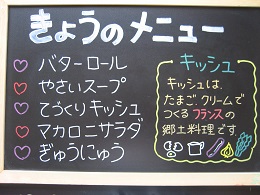 きょうのメニュー
バターロール
やさいスープ
てづくりキッシュ
マカロニサラダ
ぎゅうにゅう
キッシュ
キッシュは、
たまご、クリームで
つくるフランスの
郷土料理です。